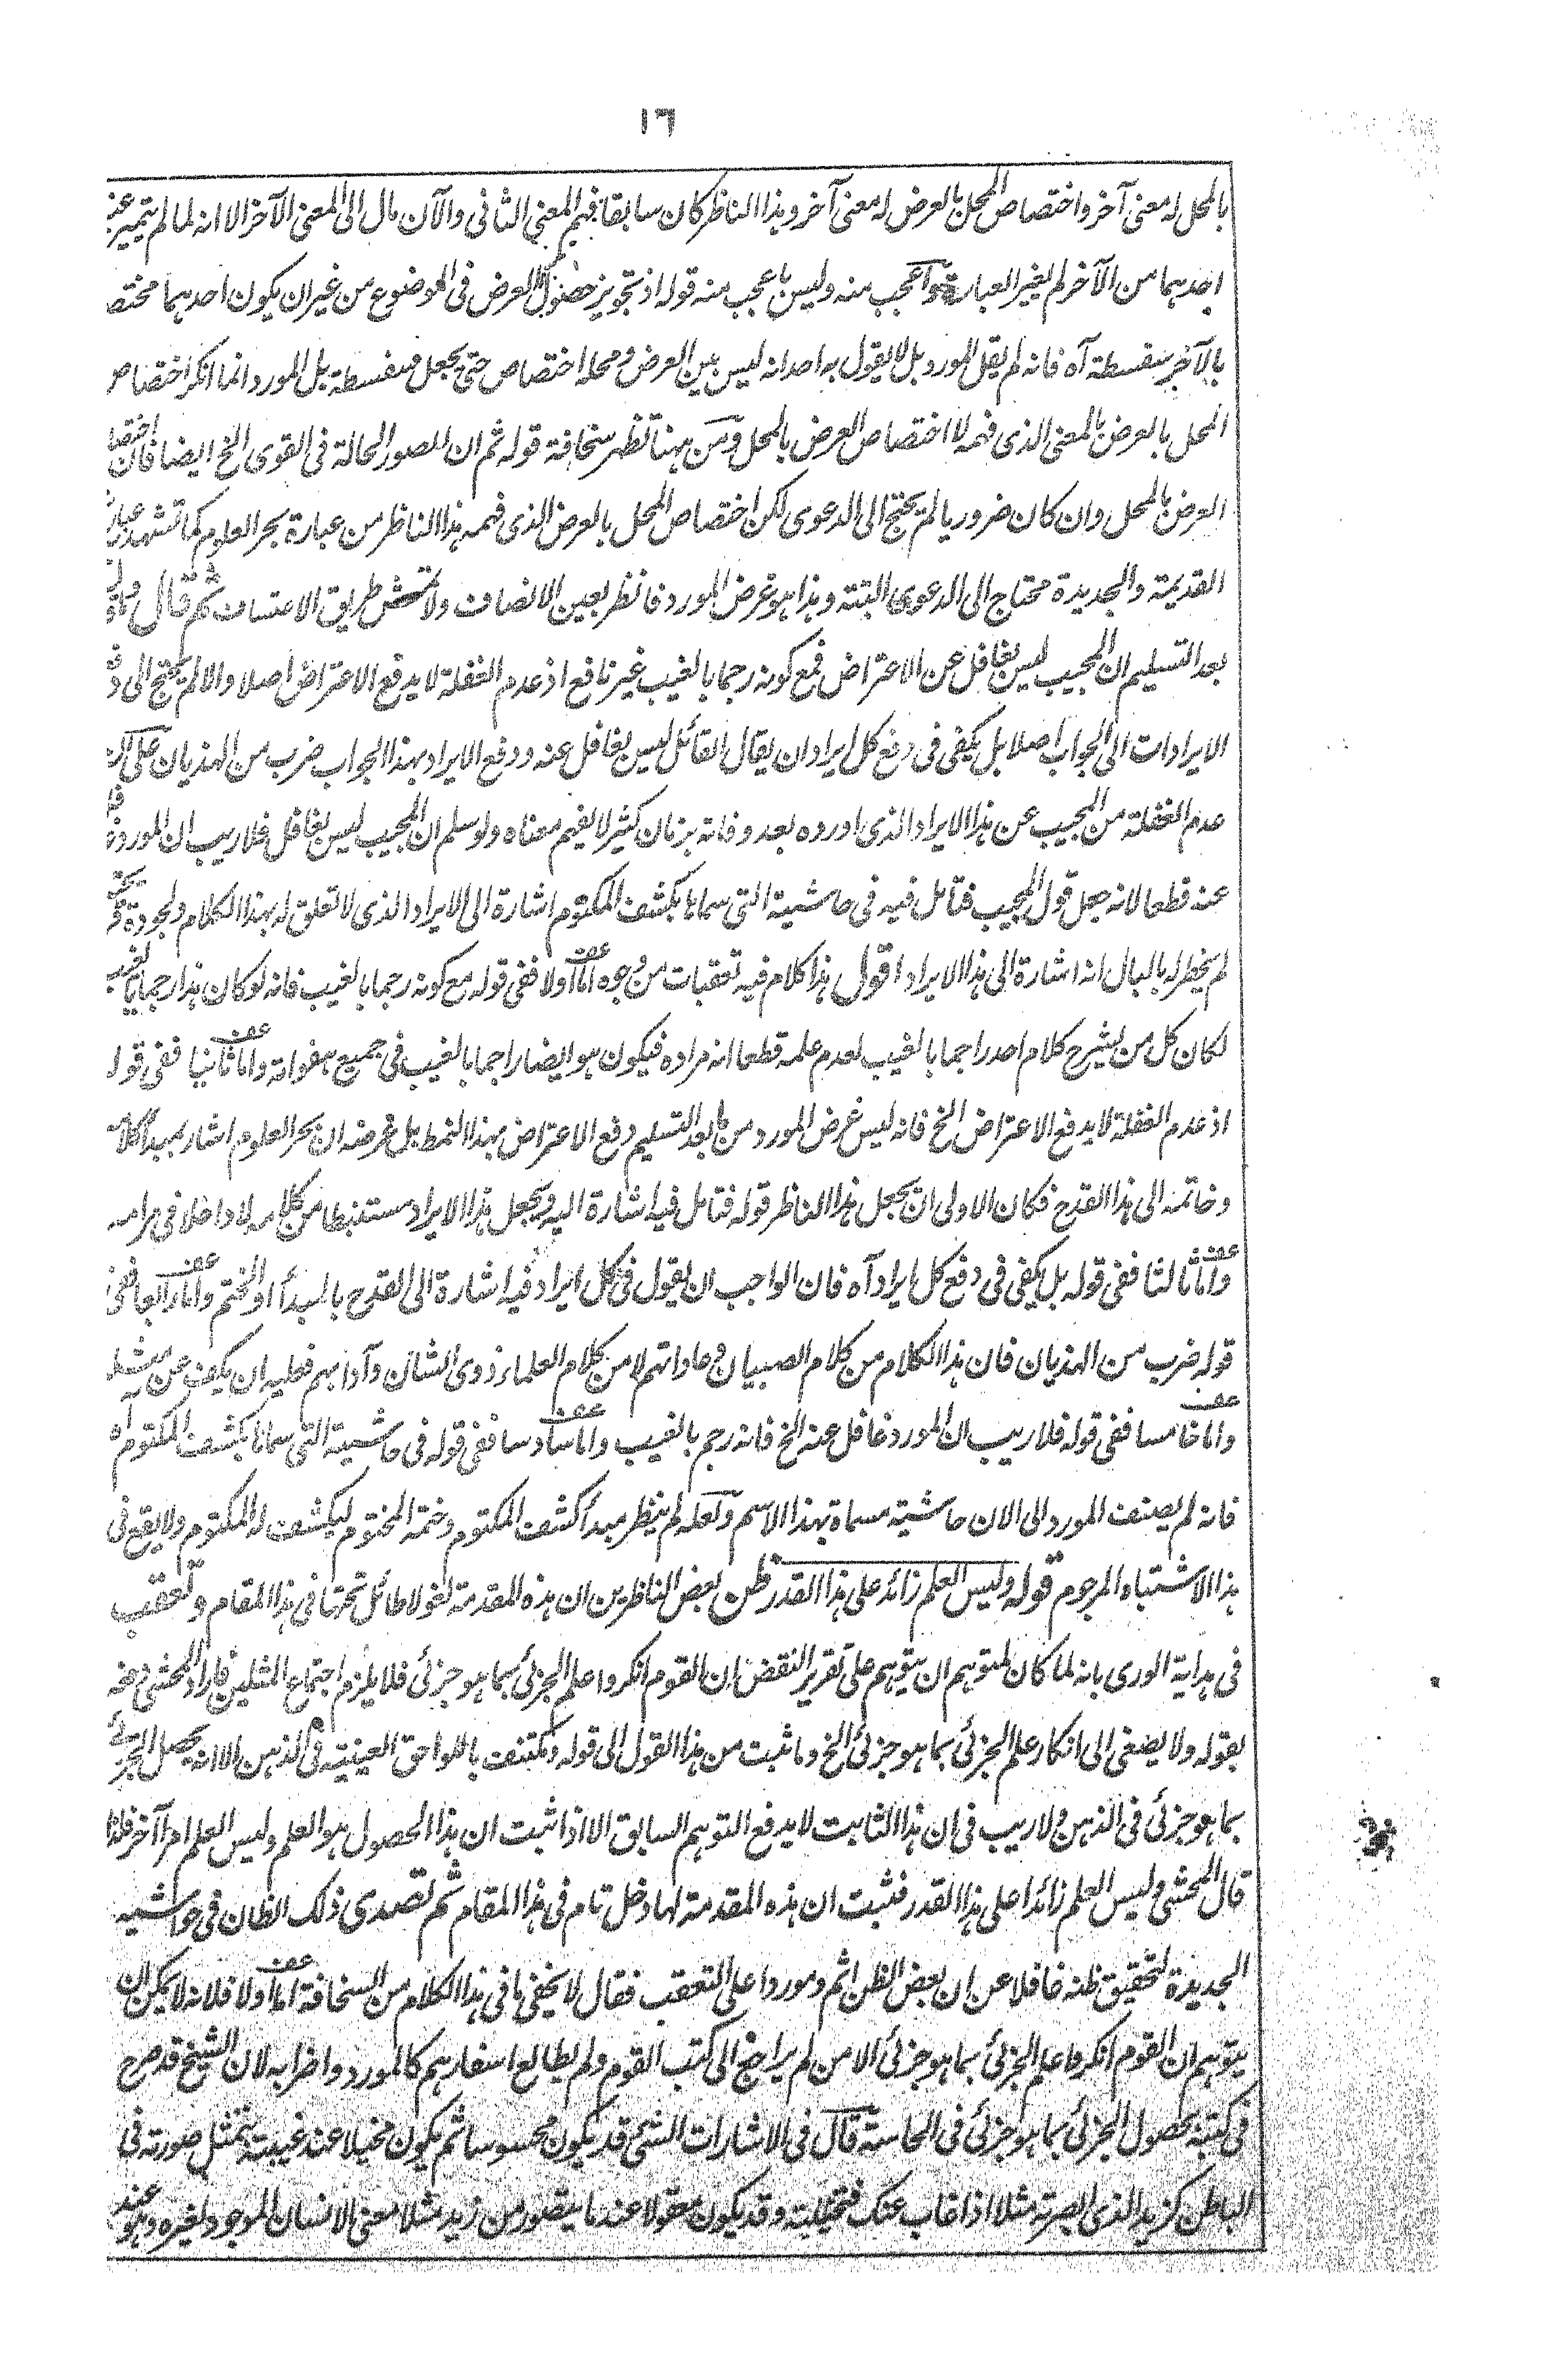 ١٦
بالمحل له معنى آخر واختصاص المحل بالعرض له معنى آخر وهذا الناظر كان سابقا فهم المعنى الثانى والآن مال الى المعنى الآخر الا انه لما لم يتميز عنده
احدهما من الآخر لم يغير العبارة واعجب منه وليس باعجب منه قوله اذ تجويز حصول العرض فى الموضوع من غير ان يكون احدهما مختصا
بالآخر سفسطة آه فانه لم يقل المورد بل لا يقول به احد انه ليس بين العرض ومحله اختصاص حتى يجعل سفسطة بل المورد انما انكر اختصاص
المحل بالعرض بالمعنى الذى فهمه لا اختصاص العرض بالمحل ومن ههنا تظهر سخافة قوله ثم ان الصور الحالة فى القوى الخ ايضا فان اختصاص
العرض بالمحل وان كان ضروريا لم يحتج الى الدعوى لكن اختصاص المحل بالعرض الذى فهمه هذا الناظر من عبارة بحر العلوم كما تشهد عبارته
القديمة والجديدة محتاج الى الدعوى البتة وهذا هو غرض المورد فانظر بعين الانصاف ولا تمش طريق الاعتساف ثم قال
بعد التسليم ان المجيب ليس بغافل عن الاعتراض فمع كونه رجما بالغيب غير نافع اذ عدم الغفلة لا يدفع الاعتراض اصلا والا لم يحتج الى
الايرادات الى الجواب اصلا بل يكفى فى دفع كل ايراد ان يقال القائل ليس بغافل عنه ودفع الايراد بهذا الجواب ضرب من الهذيان على ان
عدم الغفلة من المجيب عن هذا الايراد الذى اورده بعد وفاته بزمان كثير لا يفهم معناه ولو سلم ان المجيب ليس بغافل فلا ريب ان المورد غافل
عنه قطعا لانه جعل قول المجيب فتأمل فيه فى حاشية التى سماها بكشف المكتوم اشارة الى الايراد الذى لا تعلق له بهذا الكلام ولجودة
لم يخطر له بالبال انه اشارة الى هذا الايراد اقول هذا كلام فيه تعقبات من وجوه اما اولا ففى قوله مع كونه رجما بالغيب فانه لو كان هذا رجما بالغيب
لكان كل من يشرح كلام احد راجما بالغيب لعدم علمه قطعا انه مراده فيكون هو ايضا راجما بالغيب فى جميع هفواته واما ثانيا ففى قوله
اذ عدم الغفلة لا يدفع الاعتراض الخ فانه ليس غرض المورد من ما بعد التسليم دفع الاعتراض بهذا النمط بل غرضه ان بحر العلوم اشار بمبدأ كلامه
وخاتمه الى هذا القدح فكان الاولى ان يجعل هذا الناظر قوله فتامل فيه اشارة اليه ويجعل هذا الايراد مستنبطا من كلامه لا داخلا فى مرامه
واما ثالثا ففى قوله بل يكفى فى دفع كل ايراد آه فان الواجب ان يقول فى كل ايراد فيه اشارة الى القدح بالمبدأ او الختم واما رابعا ففى
قوله ضرب من الهذيان فان هذا الكلام من كلام الصبيان وعاداتهم لا من كلام العلماء ذوى الشان وآدابهم فعليه ان يكف عن مثله
واما خامسا ففى قوله فلا ريب ان المورد غافل عنه الخ فانه رجم بالغيب واما سادسا ففى قوله فى حاشية التى سماها بكشف المكتوم آه
فانه لم يصنف المورد الى الان حاشية مسماة بهذا الاسم ولعله لم ينظر مبدأ كشف المكتوم وختمه المختوم ليكشف له المكتوم ولا يقع فى
هذا الاشتباه المرجوم قوله وليس العلم زائد على هذا القدر ظن بعض الناظرين ان هذه المقدمة لغو لا طائل تحتها فى هذا المقام وتعقب
فى هداية الورى بانه لما كان لمتوهم ان يتوهم على تقرير النقض ان القوم انكروا علم الجزئى بما هو جزئى فلا يلزم اجتماع المثلين فاراد المحشى دفعه
بقوله ولا يصغى الى انكار علم الجزئى بما هو جزئى الخ وما ثبت من هذا القول الى قوله ومكتنف باللواحق العينية فى الذهن الا انه يحصل الجزئى
بما هو جزئى فى الذهن ولا ريب فى ان هذا الثابت لا يدفع التوهم السابق الا اذا ثبت ان هذا الحصول هو العلم وليس العلم امرا آخر فلذا
قال المحشى وليس العلم زائدا على هذا القدر فثبت ان هذه المقدمة لها دخل تام فى هذا المقام ثم تصدى ذلك الظان فى حواشيه
الجديدة لتحقيق ظنه غافلا عن ان بعض الظن اثم وموردا على التعقب فقال لا يخفى ما فى هذا الكلام من السخافة اما اولا فلانه لا يمكن ان
يتوهم ان القوم انكروا علم الجزئى بما هو جزئى الا من لم يراجع الى كتب القوم ولم يطالع اسفارهم كالمورد واضرابه لان الشيخ قد صرح
فى كتبه بحصول الجزئى بما هو جزئى فى الحاسة قال فى الاشارات الشئ قد يكون محسوسا ثم يكون مخيلا عند غيبته بتمثل صورته فى
الباطن كزيد الذى ابصرته مثلا اذا غاب عنك فتخيلته وقد يكون معقولا عند ما يتصور من زيد مثلا معنى الانسان الموجود لغيره وهو عند